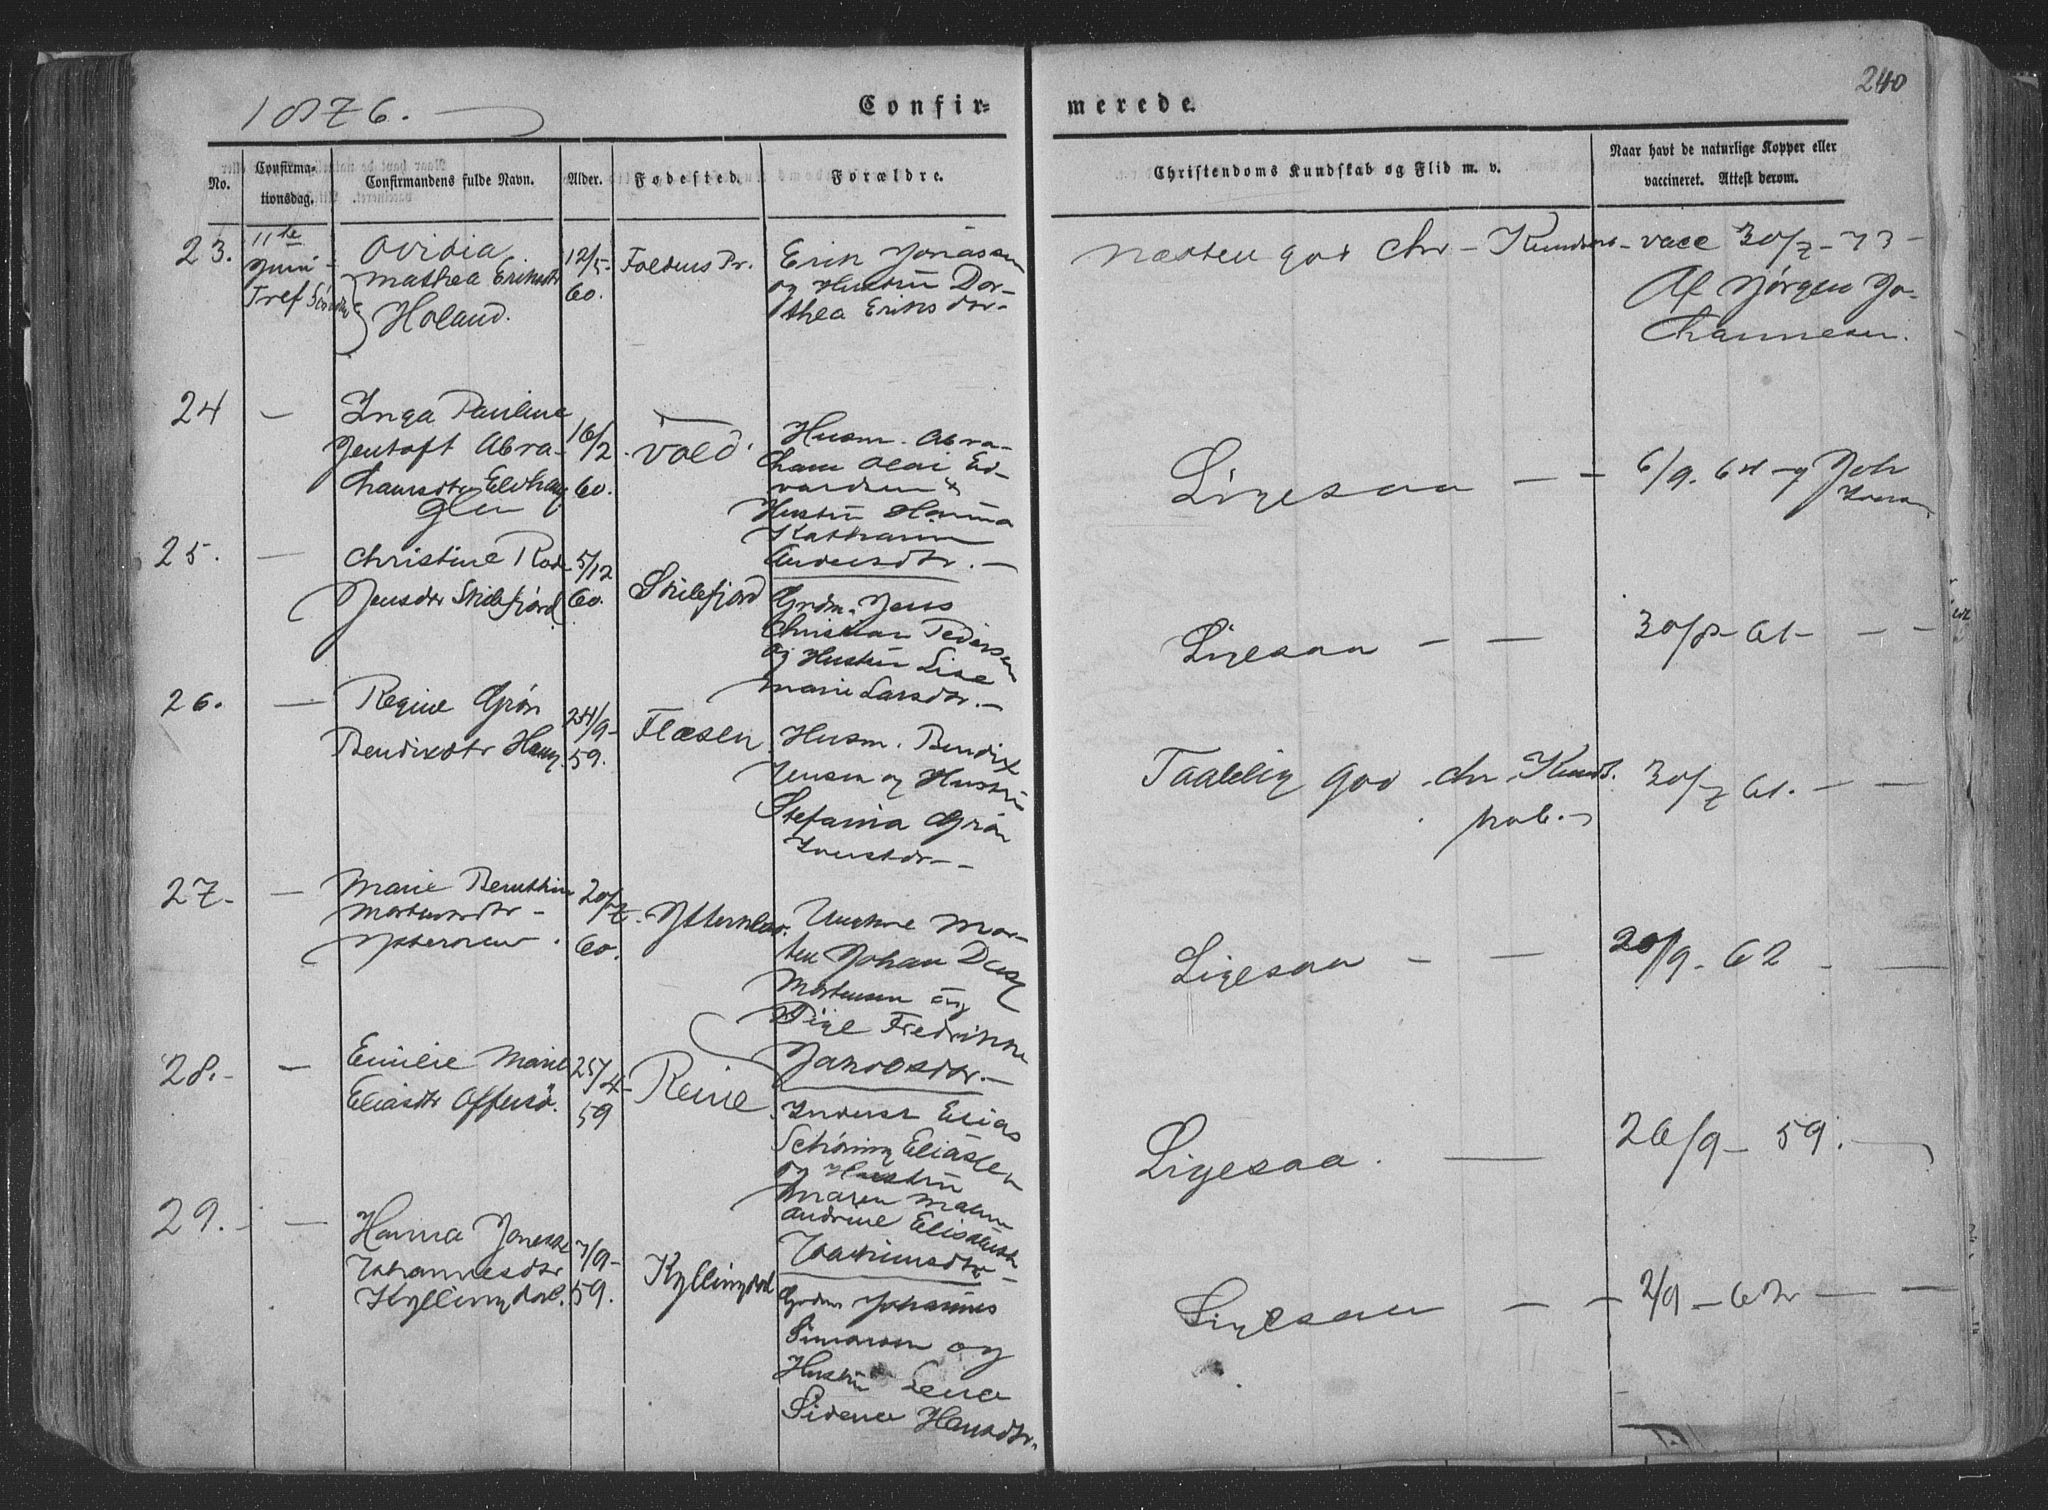 240
1876.
Confir=
merede.
No.
Confirma-
tionsdag.
Confirmandens fulde Navn.
Alder.
Fødested.
Forældre.
Christendoms Kundskab og Flid m. v.
Naar havt de naturlige Kopper eller
vaccineret. Attest derom.
23.
11te
Juni
Tref
Ovidia
Mathea Eriksdtr
Holand.
12/5-
60.
Foldens Pr.
Erik Jonassen
og Hustru Dor-
thea Eriksdtr-
Næsten god Chr-
vacc 30/7-73-
Af Jørgen Jo-
hannesen.
24
—
Inga Pauline
Jentoft Abra-
hamsdtr
16/2
60.
Vold.
Husm. Abra-
ham Olai Ed-
vardsen &
Hustru Hanna
Katharina
Andersdtr. —
Ligesaa — —
6/9. 64
25.
—
Christine
Jensdtr Skilefjord
5/12
60.
Skilefjord
Grdm. Jens
Christian Pedersen
og Hustru Lise
Marie Larsdtr. —
Ligesaa — —
30/8- 61- — —
26.
—
Regine Grøn
Bendixdtr
24/9-
59.
Flæsen
Husm. Bendix
Jensen og Hustru
Stefania Grøn
Taalelig god chr. Kundsk.
30/7 61. — —
27.
—
Marie
Mortensdtr -
20/7.
60.
Morten Johan Dass
Mortensen og
Pige Fredrikke
Jakobsdtr. —
Ligesaa — —
20/9- 62 - —
28. -
—
Emilie Marie
Eliasdtr Offersø.
25/4-
59
Reine
Inderst Elias
Schøning Eliassen
og Hustru
Maren
Andrine Elisabeth
Joachimsdtr —
Ligesaa. —
26/9- 59. —
29. -
—
Hanna
Johannesdtr
Kyllingdal.
7/9-
59.
Kyllingdal
Johannes
Simonsen og
Hustru Lena
Hansdtr.
Ligesaa — —
2/9 - 62 — —